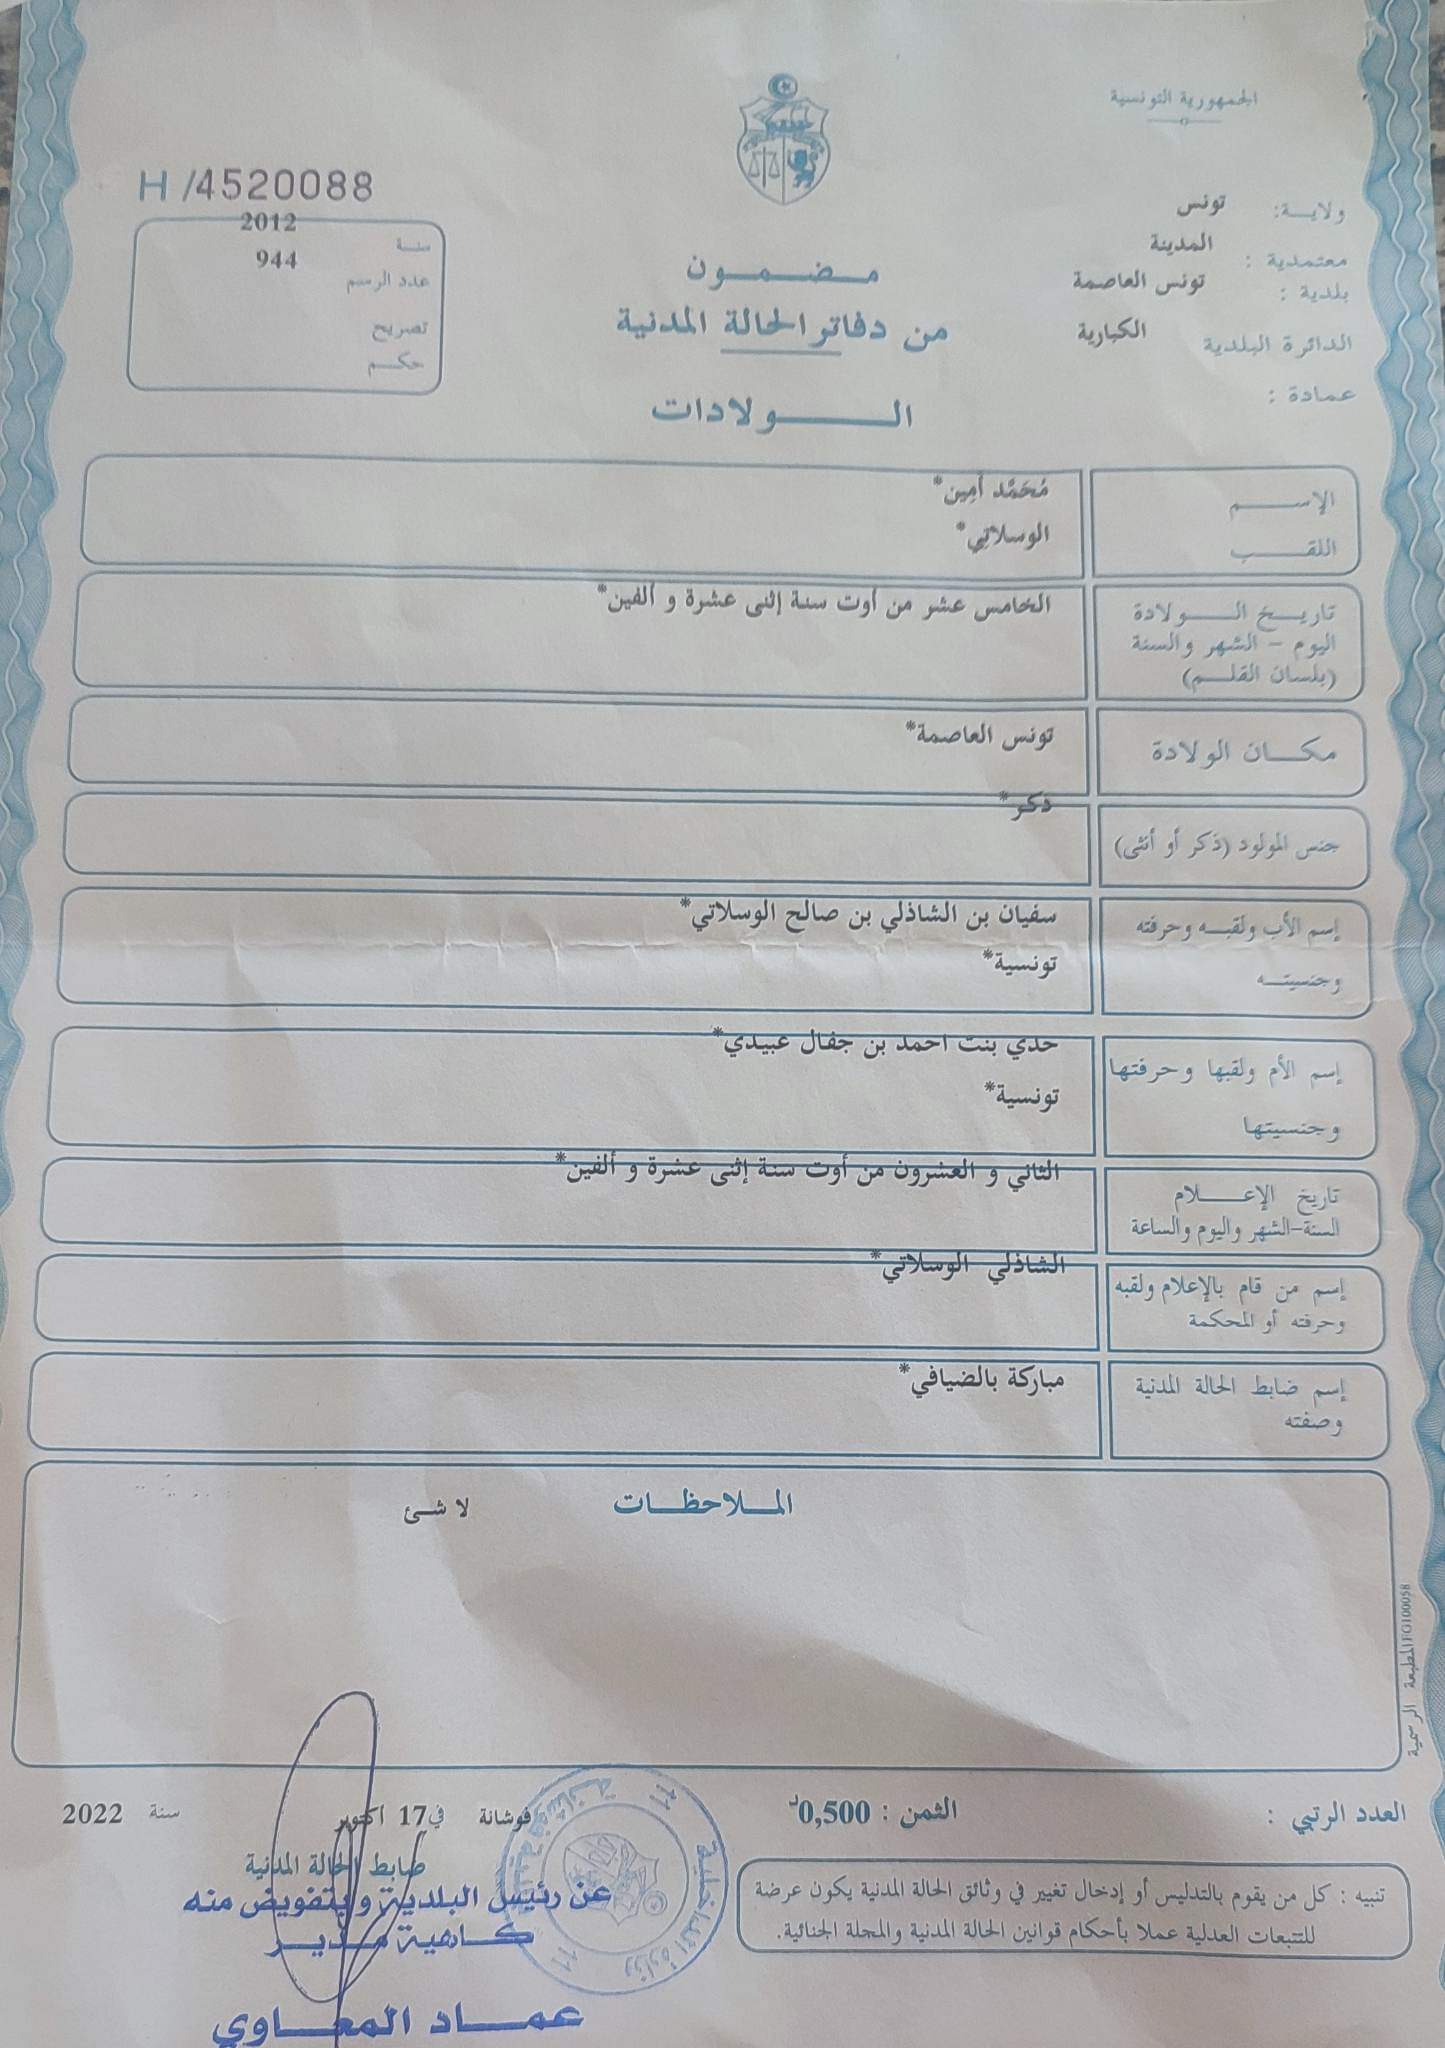 الجمهورية التونسية
ولاية: تونس
معتمدية : المدينة
بلدية : تونس العاصمة
الدائرة البلدية الكبارية
عمادة :
H /4520088
سنة 2012
عدد الرسم 944
تصريح
حكم
مضمون
من دفاتر الحالة المدنية
الولادات
الإسم مُحَمَّد أمِين*
اللقب الوسلاتِي*
تاريخ الولادة
اليوم - الشهر والسنة
(بلسان القلم)
الخامس عشر من أوت سنة إثنى عشرة و ألفين*
مكان الولادة تونس العاصمة*
جنس المولود (ذكر أو أنثى) ذكر*
إسم الأب ولقبه وحرفته سفيان بن الشاذلي بن صالح الوسلاتي*
وجنسيته تونسية*
إسم الأم ولقبها وحرفتها حدي بنت احمد بن جفال عبيدي*
وجنسيتها تونسية*
تاريخ الإعلام الثاني و العشرون من أوت سنة إثنى عشرة و ألفين*
السنة-الشهر واليوم والساعة
إسم من قام بالإعلام ولقبه الشاذلي الوسلاتي*
وحرفته أو المحكمة
إسم ضابط الحالة المدنية مباركة بالضيافي*
وصفته
الملاحظات لا شئ
المطبعة الرسمية FO100058
العدد الرتبي : الثمن : 0,500د
فوشانة في 17 أكتوبر سنة 2022
ضابط الحالة المدنية
عن رئيس البلدية و بتفويض منه
كاهية مدير
عماد المعاوي
وزارة الداخلية
تنبيه : كل من يقوم بالتدليس أو إدخال تغيير في وثائق الحالة المدنية يكون عرضة
للتتبعات العدلية عملا بأحكام قوانين الحالة المدنية والمجلة الجنائية.